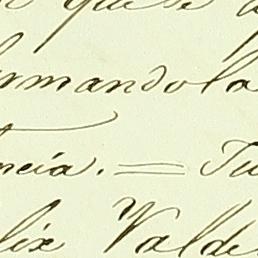 que se
rmandola
ncia. = Tu
lix Valde